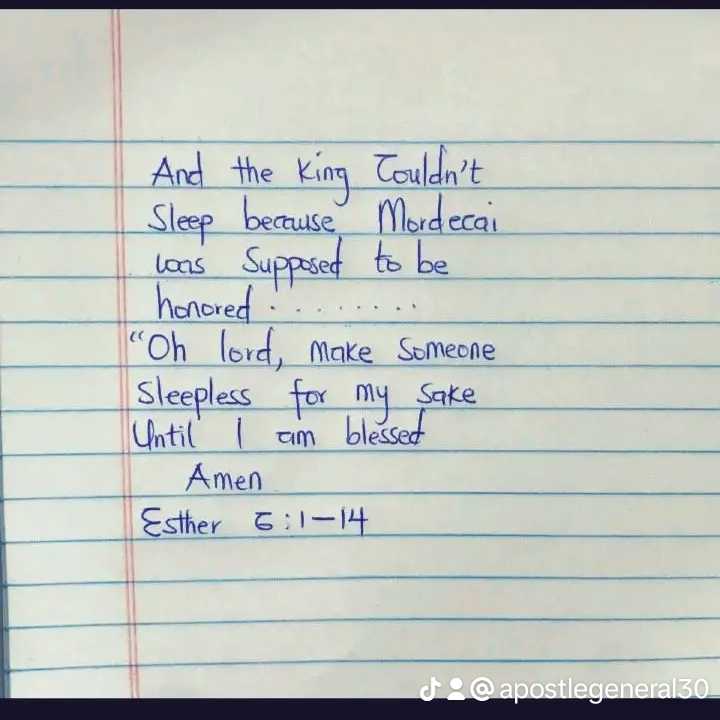 And the King Couldn't
Sleep because Mordecai
was Supposed to be
honored . . . . . . . .
"Oh lord, make Someone
Sleepless for my Sake
Until I am blessed
Amen
Esther 6:1-14
@apostlegeneral30